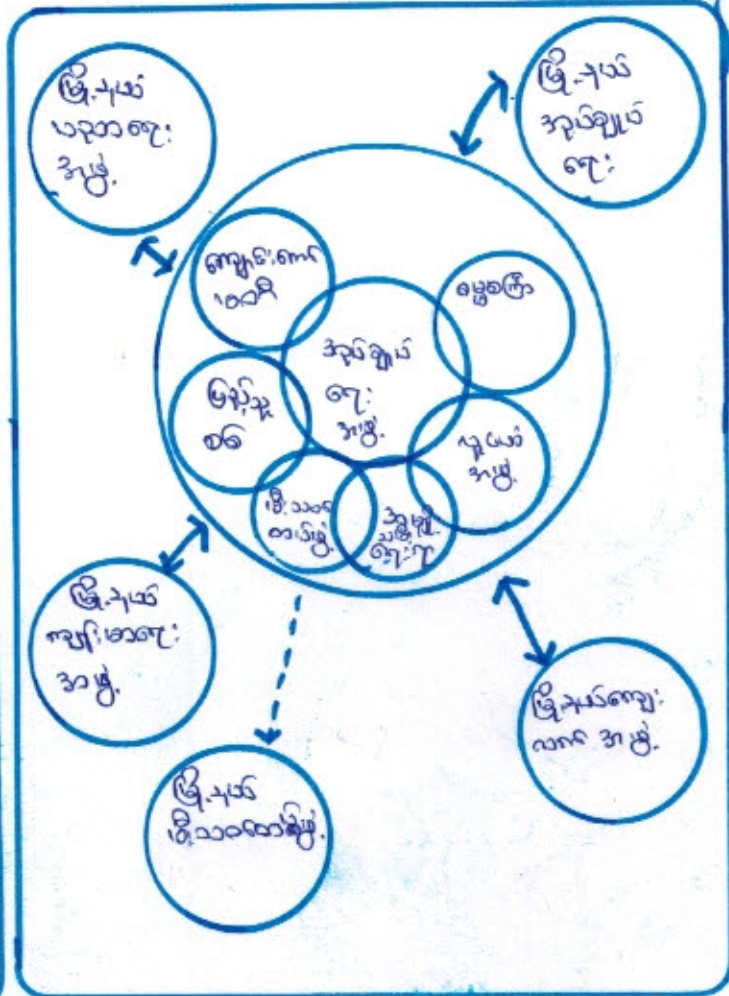 မြို့နယ်
ပညာရေး
အဖွဲ့
မြို့နယ်
အုပ်ချုပ်
ရေး
ကျောင်းကော်
မတီ
ဓမ္မစကြာ
အုပ်ချုပ်
ရေး
အဖွဲ့
ပြည်သူ့
စစ်
လူငယ်
အဖွဲ့
မီးသတ်
တပ်ဖွဲ့
အမျိုး
သမီး
ရေးရာ
မြို့နယ်
ကျန်းမာရေး
အဖွဲ့
မြို့နယ်ကျေး
လက် အဖွဲ့
မြို့နယ်
မီးသတ်တပ်ဖွဲ့